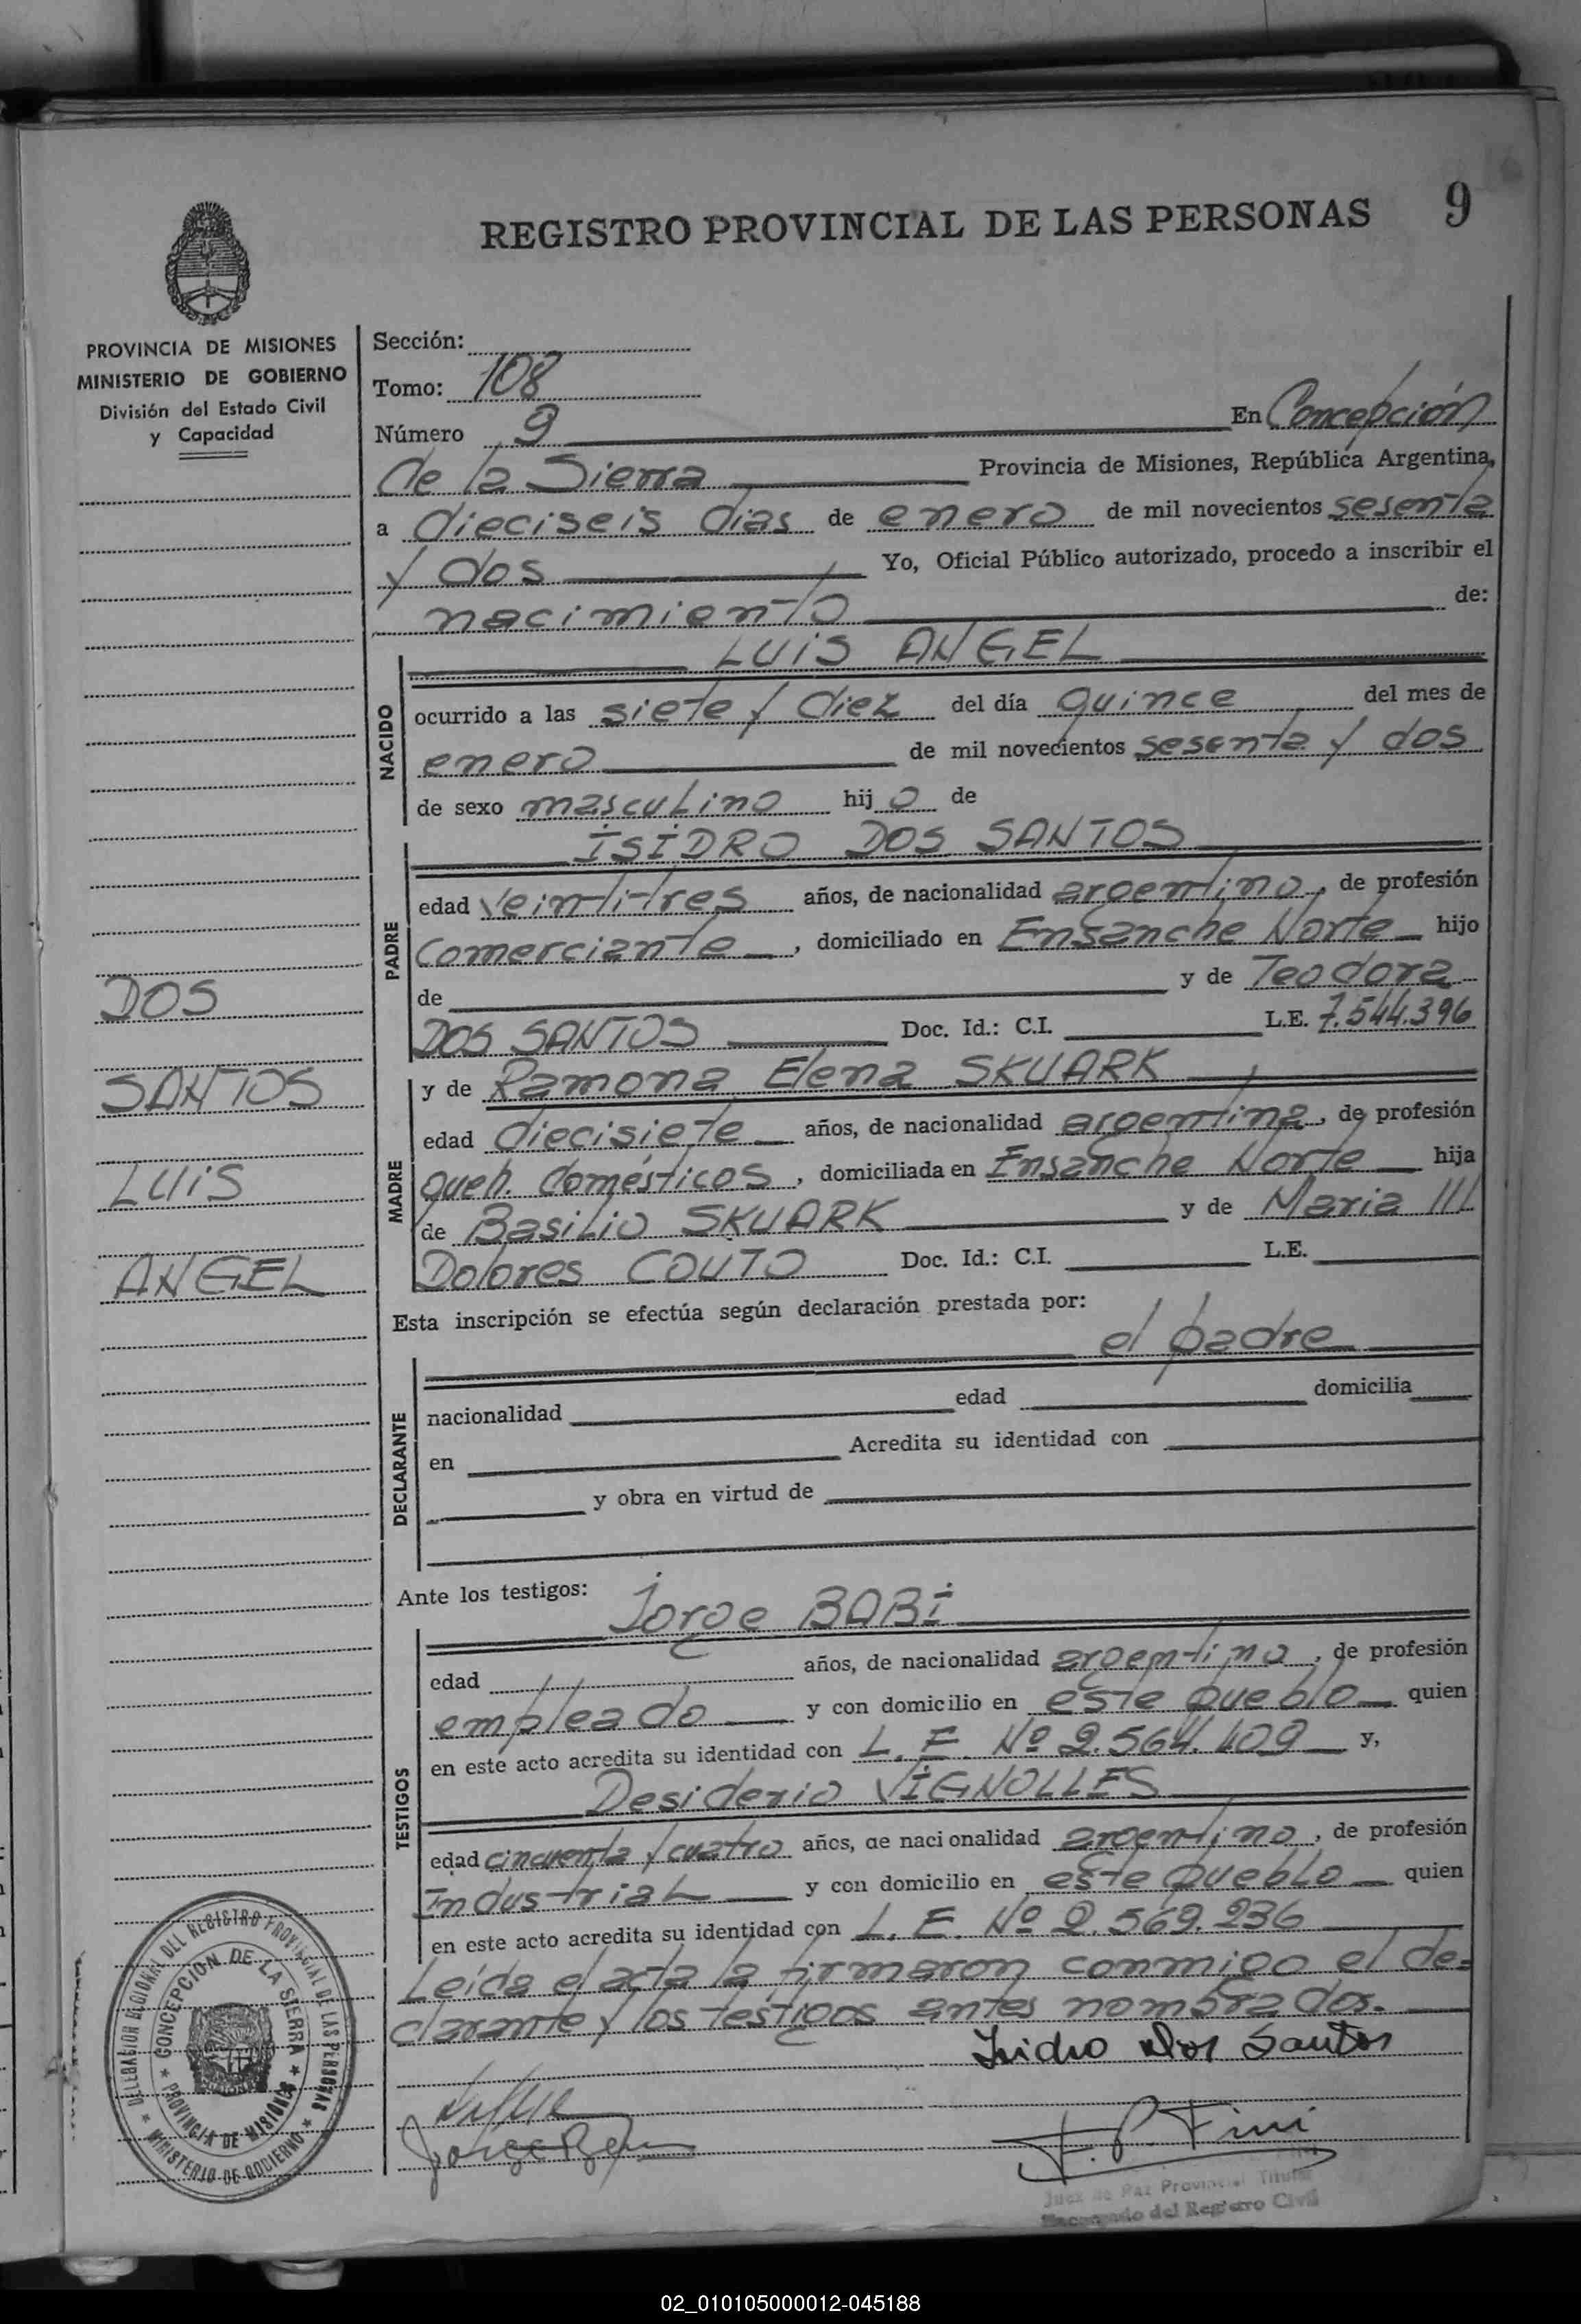 REGISTRO PROVINCIAL DE LAS PERSONAS 9
PROVINCIA DE MISIONES
MINISTERIO DE GOBIERNO
División del Estado Civil
y Capacidad
DOS
SANTOS
LUIS
ANGEL
Sección:
Tomo: 108
Número 9 En Concepción
de la Sierra Provincia de Misiones, República Argentina,
a dieciseis dias de enero de mil novecientos sesenta
y dos Yo, Oficial Público autorizado, procedo a inscribir el
nacimiento de:
LUIS ANGEL
NACIDO
ocurrido a las siete y diez del día quince del mes de
enero de mil novecientos sesenta y dos
de sexo masculino hij o de
ISIDRO DOS SANTOS
PADRE
edad veintitres años, de nacionalidad argentino, de profesión
comerciante, domiciliado en Ensanche Norte hijo
de y de Teodora
DOS SANTOS Doc. Id.: C.I. L.E. 7.544.396
y de Ramona Elena SKUARK
MADRE
edad diecisiete años, de nacionalidad argentina, de profesión
queh. domésticos, domiciliada en Ensanche Norte hija
de Basilio SKUARK y de Maria
Dolores COUTO Doc. Id.: C.I. L.E.
Esta inscripción se efectúa según declaración prestada por:
el padre
DECLARANTE
nacionalidad edad domicilia
en Acredita su identidad con
y obra en virtud de
Ante los testigos: Jorge BABI
TESTIGOS
edad años, de nacionalidad argentino, de profesión
empleado y con domicilio en este pueblo quien
en este acto acredita su identidad con L. E. Nº 2.564.409 y,
Desiderio VIGNOLLES
edad cincuenta y cuatro años, de nacionalidad argentino, de profesión
Industrial y con domicilio en este pueblo quien
en este acto acredita su identidad con L. E. Nº 2.569.236
Leída el acta la firmaron conmigo el de=
clarante y los testigos antes nombrados.
Isidro Dos Santos
F. P. Fini
Juez de Paz Provincial Titular
Encargado del Registro Civil
DELEGACION REGIONAL DEL REGISTRO PROVINCIAL DE LAS PERSONAS
MINISTERIO DE GOBIERNO
CONCEPCION DE LA SIERRA
PROVINCIA DE MISIONES
02_010105000012-045188